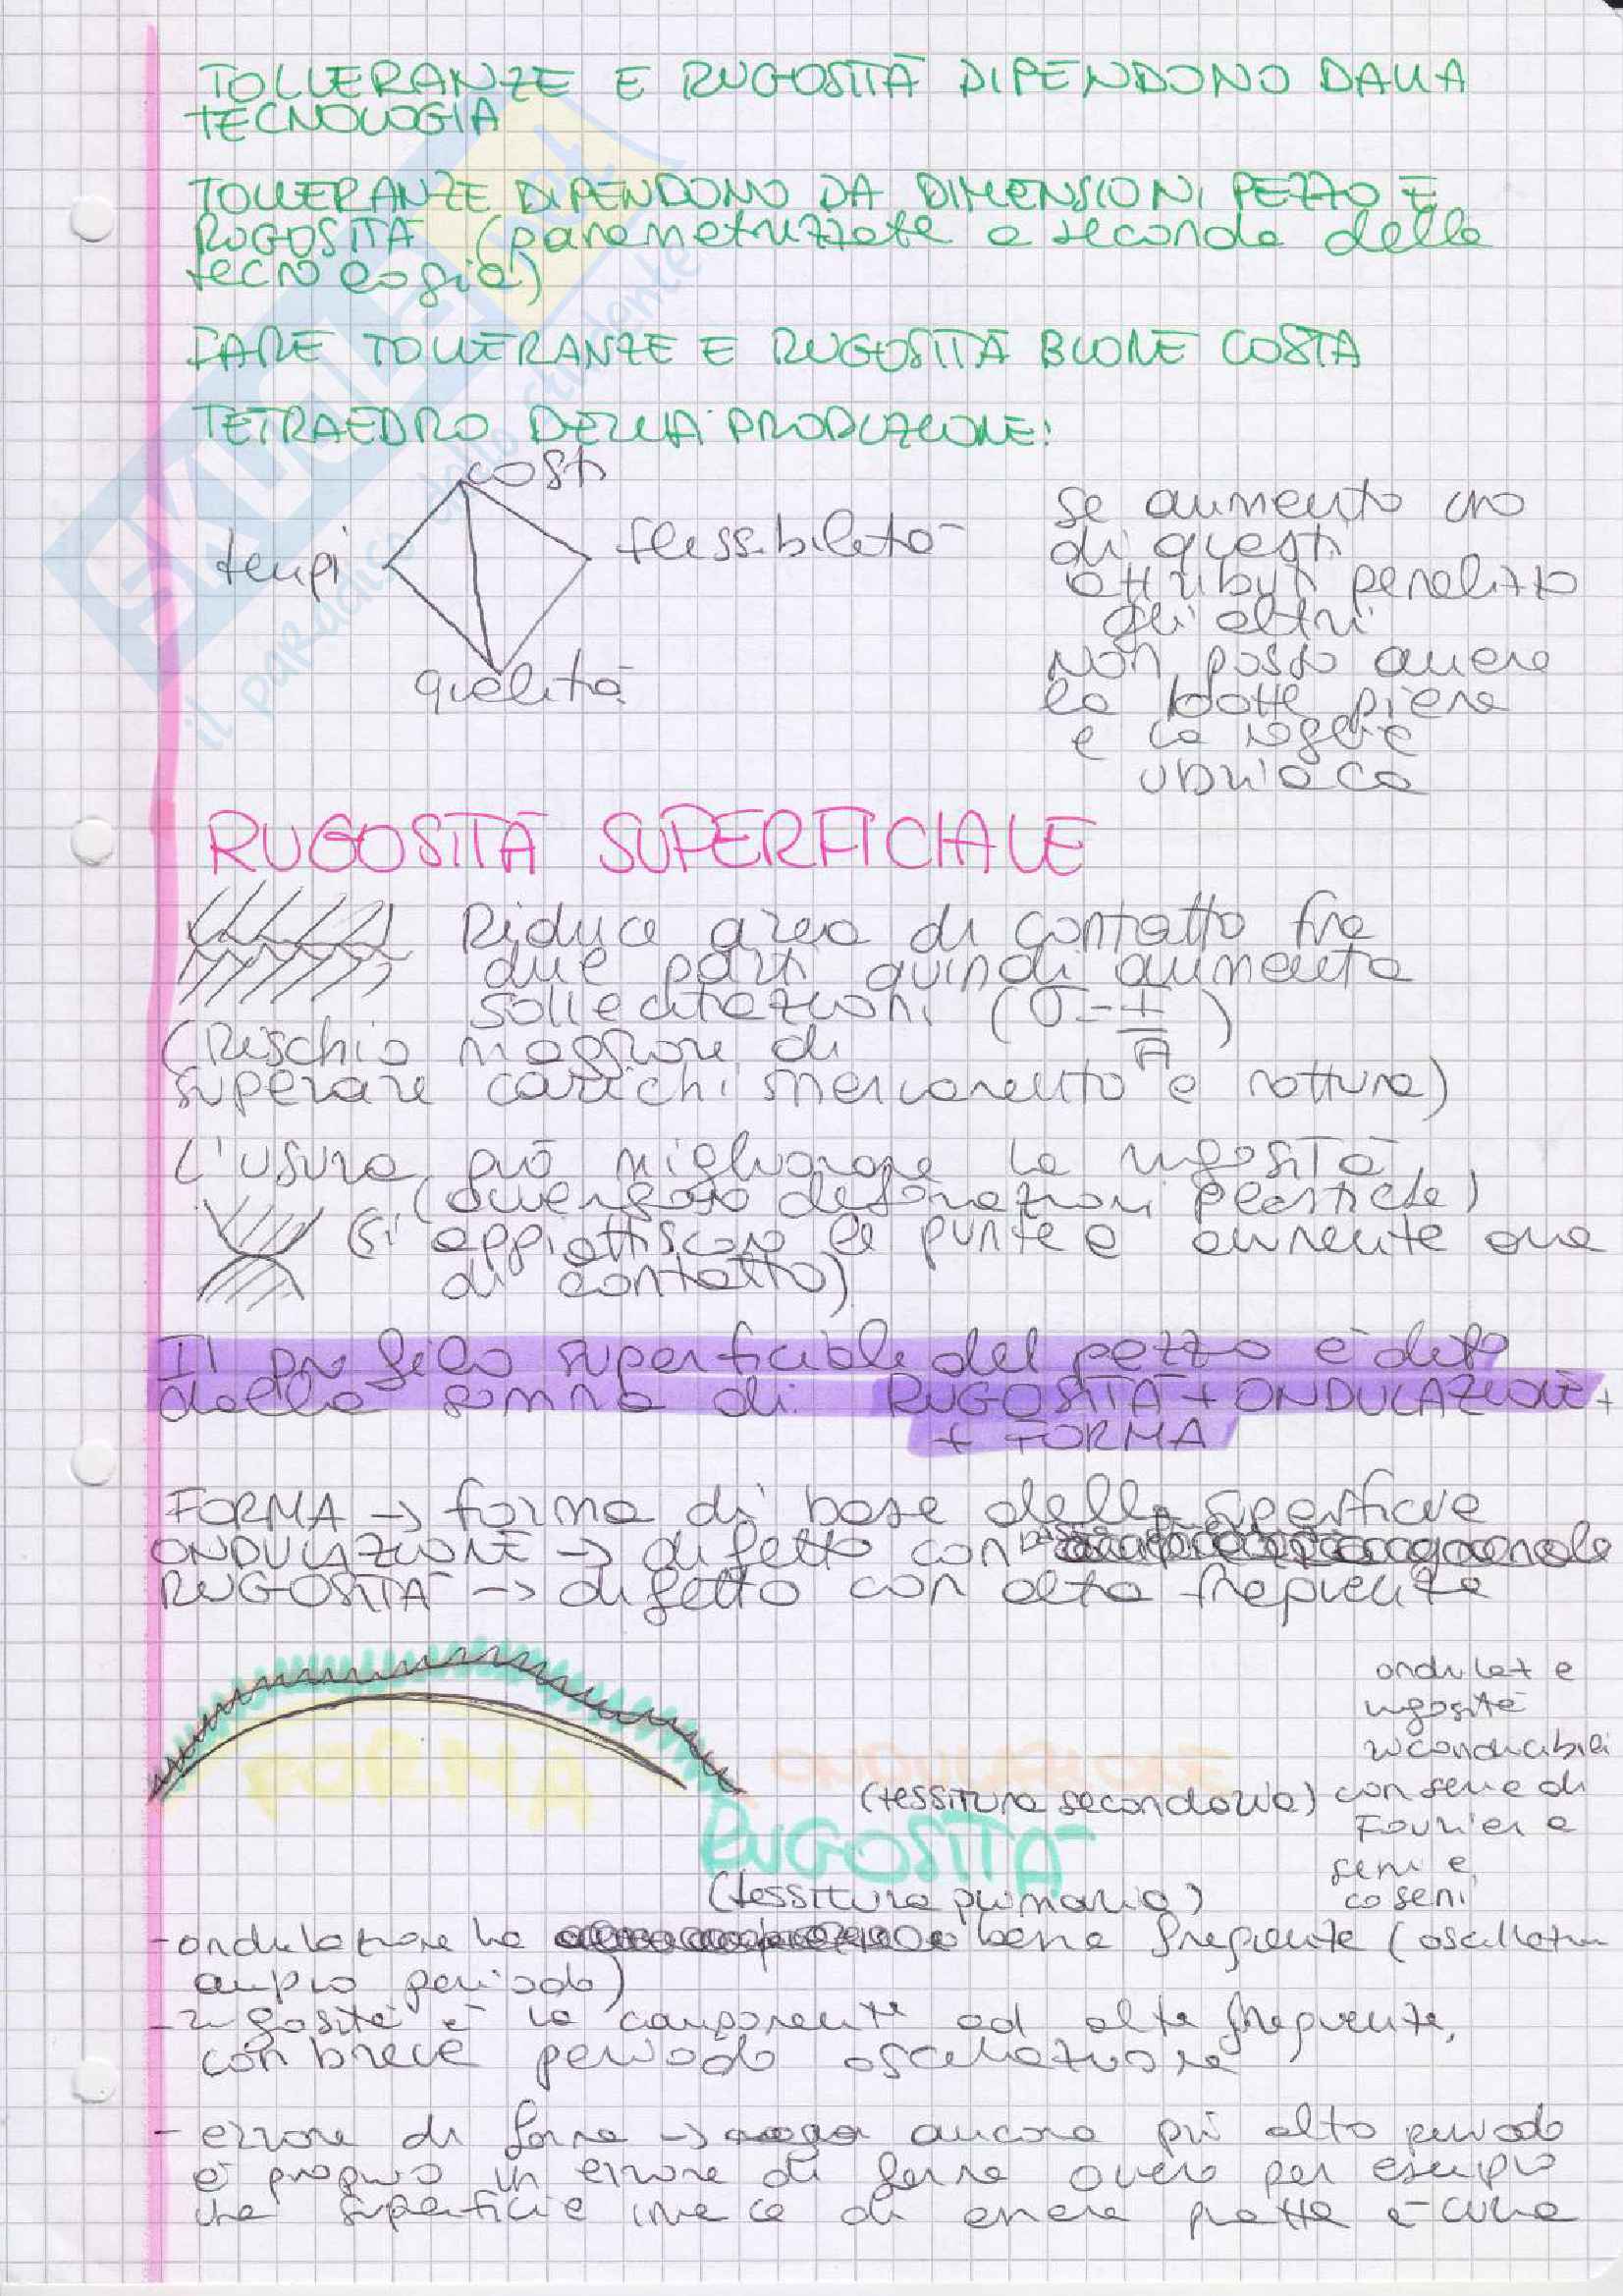 TOLLERANZE E RUGOSITÀ DIPENDONO DALLA
TECNOLOGIA
TOLLERANZE DIPENDONO DA DIMENSIONI PEZZO E
RUGOSITÀ (parametrizzate a seconda della
tecnologia)
FARE TOLLERANZE E RUGOSITÀ BUONE COSTA
TETRAEDRO DELLA PRODUZIONE:
costi
tempi
flessibilità
qualità
se aumento uno
di questi
attributi penalizzo
gli altri
non posso avere
la botte piena
e la moglie
ubriaca
RUGOSITÀ SUPERFICIALE
Riduce area di contatto fra
due parti quindi aumenta
sollecitazioni (σ = F/A)
(Rischio maggiore di
superare carichi snervamento e rottura)
L'usura può migliorare la rugosità
(avvengono deformazioni plastiche)
(Si appiattiscono le punte e aumenta area
di contatto)
Il profilo superficiale del pezzo è dato
dalla somma di: RUGOSITÀ + ONDULAZIONE +
+ FORMA
FORMA → forma di base della superficie
ONDULAZIONE → difetto con
RUGOSITÀ → difetto con alta frequenza
FORMA
ONDULAZIONE
(tessitura secondaria)
RUGOSITÀ
(tessitura primaria)
ondulaz e
rugosità
riconducibili
con serie di
Fourier a
seni e
coseni
- ondulazione ha bassa frequenza (oscillazione
ampio periodo)
- rugosità è la componente ad alta frequenza,
con breve periodo oscillazione
- errore di forma → ancora più alto periodo
è proprio un errore di forma ovvero per esempio
una superficie invece di essere piatta è curva
SKUOLA.net
il paradiso dello studente